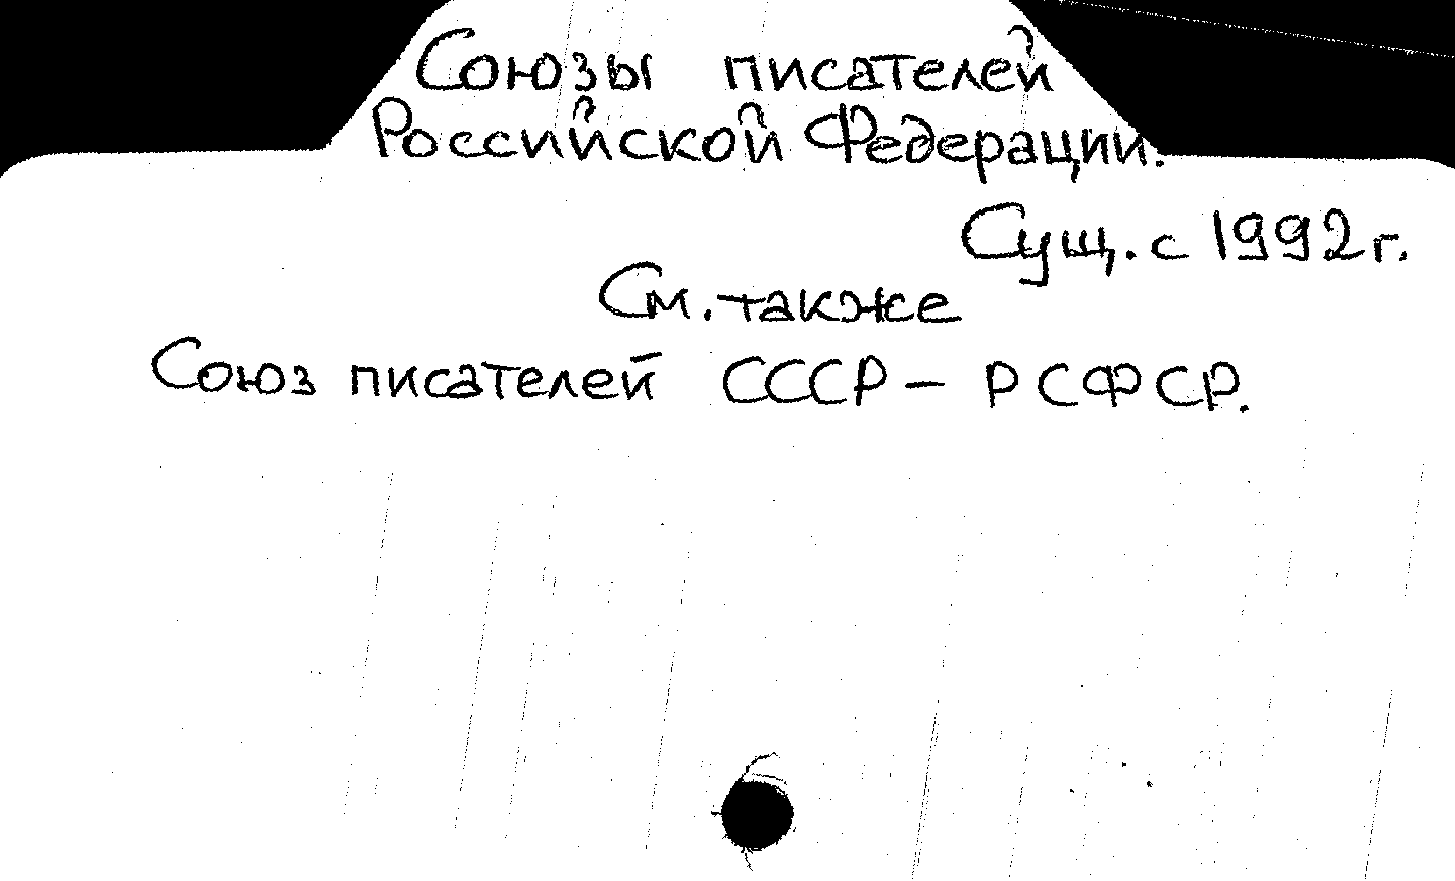 Союзы писателей
Российской Федерации.
Сущ. с 1992 г.
См. также
Союз писателей СССР – РСФСР.